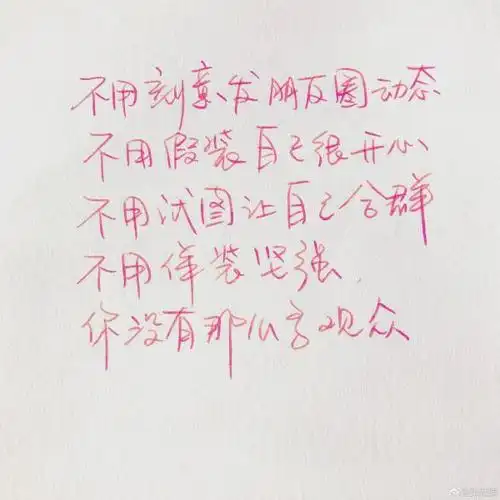 不用刻意发朋友圈动态
不用假装自己很开心
不用试图让自己合群
不用佯装坚强
你没有那么多观众